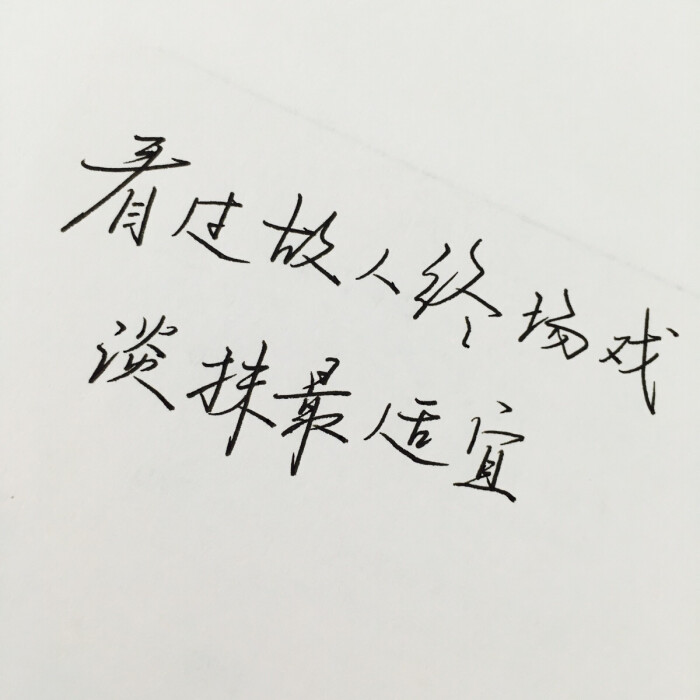 看过故人终场戏
淡抹最适宜